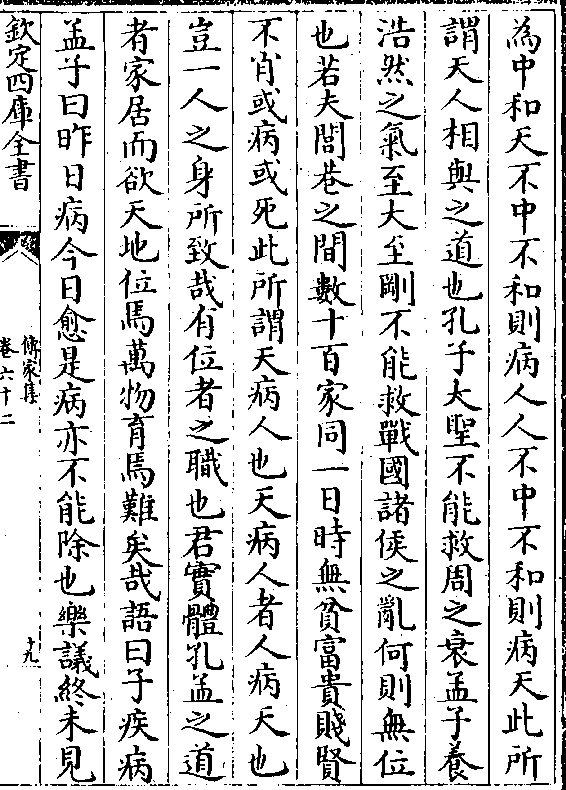 為中和天不中不和則病人人不中不和則病天此所
謂天人相與之道也孔子大聖不能救周之衰孟子養
浩然之氣至大至剛不能救戰國諸侯之亂何則無位
也若夫閭巷之間數十百家同一日時無貧富貴賤賢
不肖或病或死此所謂天病人也天病人者人病天也
豈一人之身所致哉有位者之職也君實體孔孟之道
者家居而欲天地位焉萬物育焉難矣哉語曰子疾病
孟子曰昨日病今日愈是病亦不能除也樂議終未見
欽定四庫全書
傳家集
卷六十二
十九